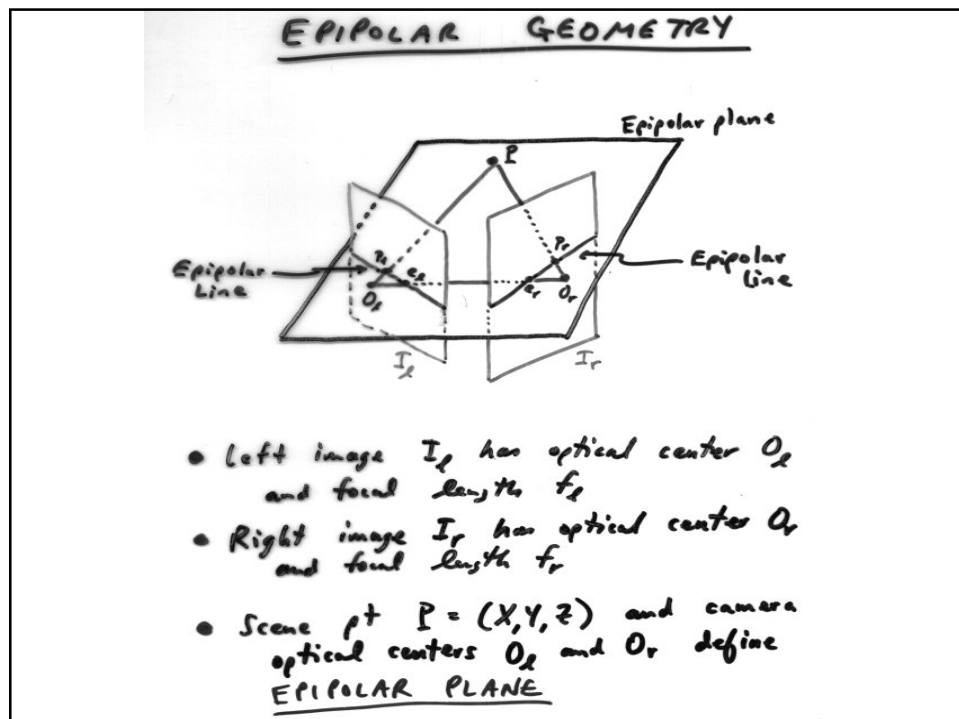 EPIPOLAR GEOMETRY
Epipolar plane
P
Epipolar Line
p_l
e_l
O_l
p_r
e_r
O_r
Epipolar Line
I_l
I_r
• Left image I_l has optical center O_l
and focal length f_l
• Right image I_r has optical center O_r
and focal length f_r
• Scene pt P = (X,Y,Z) and camera
optical centers O_l and O_r define
EPIPOLAR PLANE